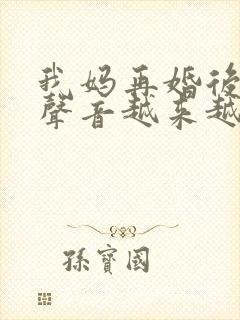 我妈再婚後
聲音越来越
孫寶國